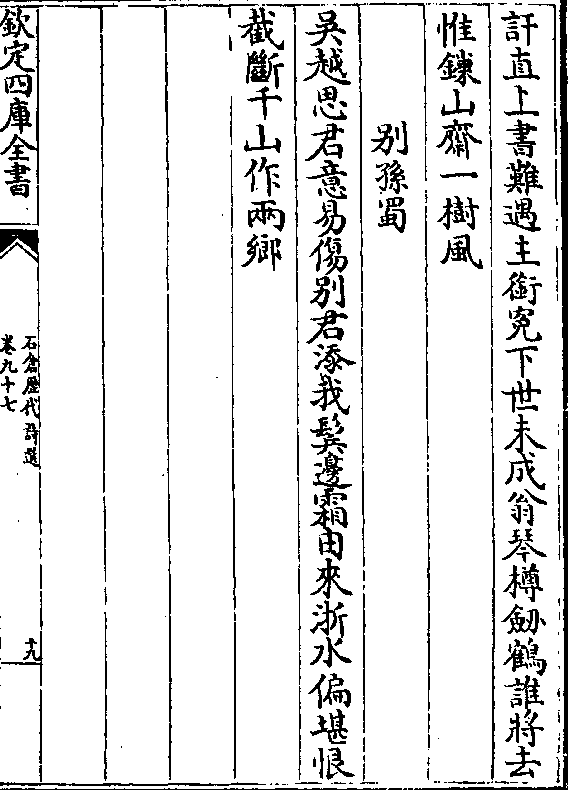 訐直上書難遇主銜寃下世未成翁琴樽劔鶴誰將去
惟鎖山齋一樹風
别孫蜀
吳越思君意易傷别君添我鬂邊霜由來浙水偏堪恨
截斷千山作兩鄉
欽定四庫全書
石倉歴代詩選
卷九十七
十九